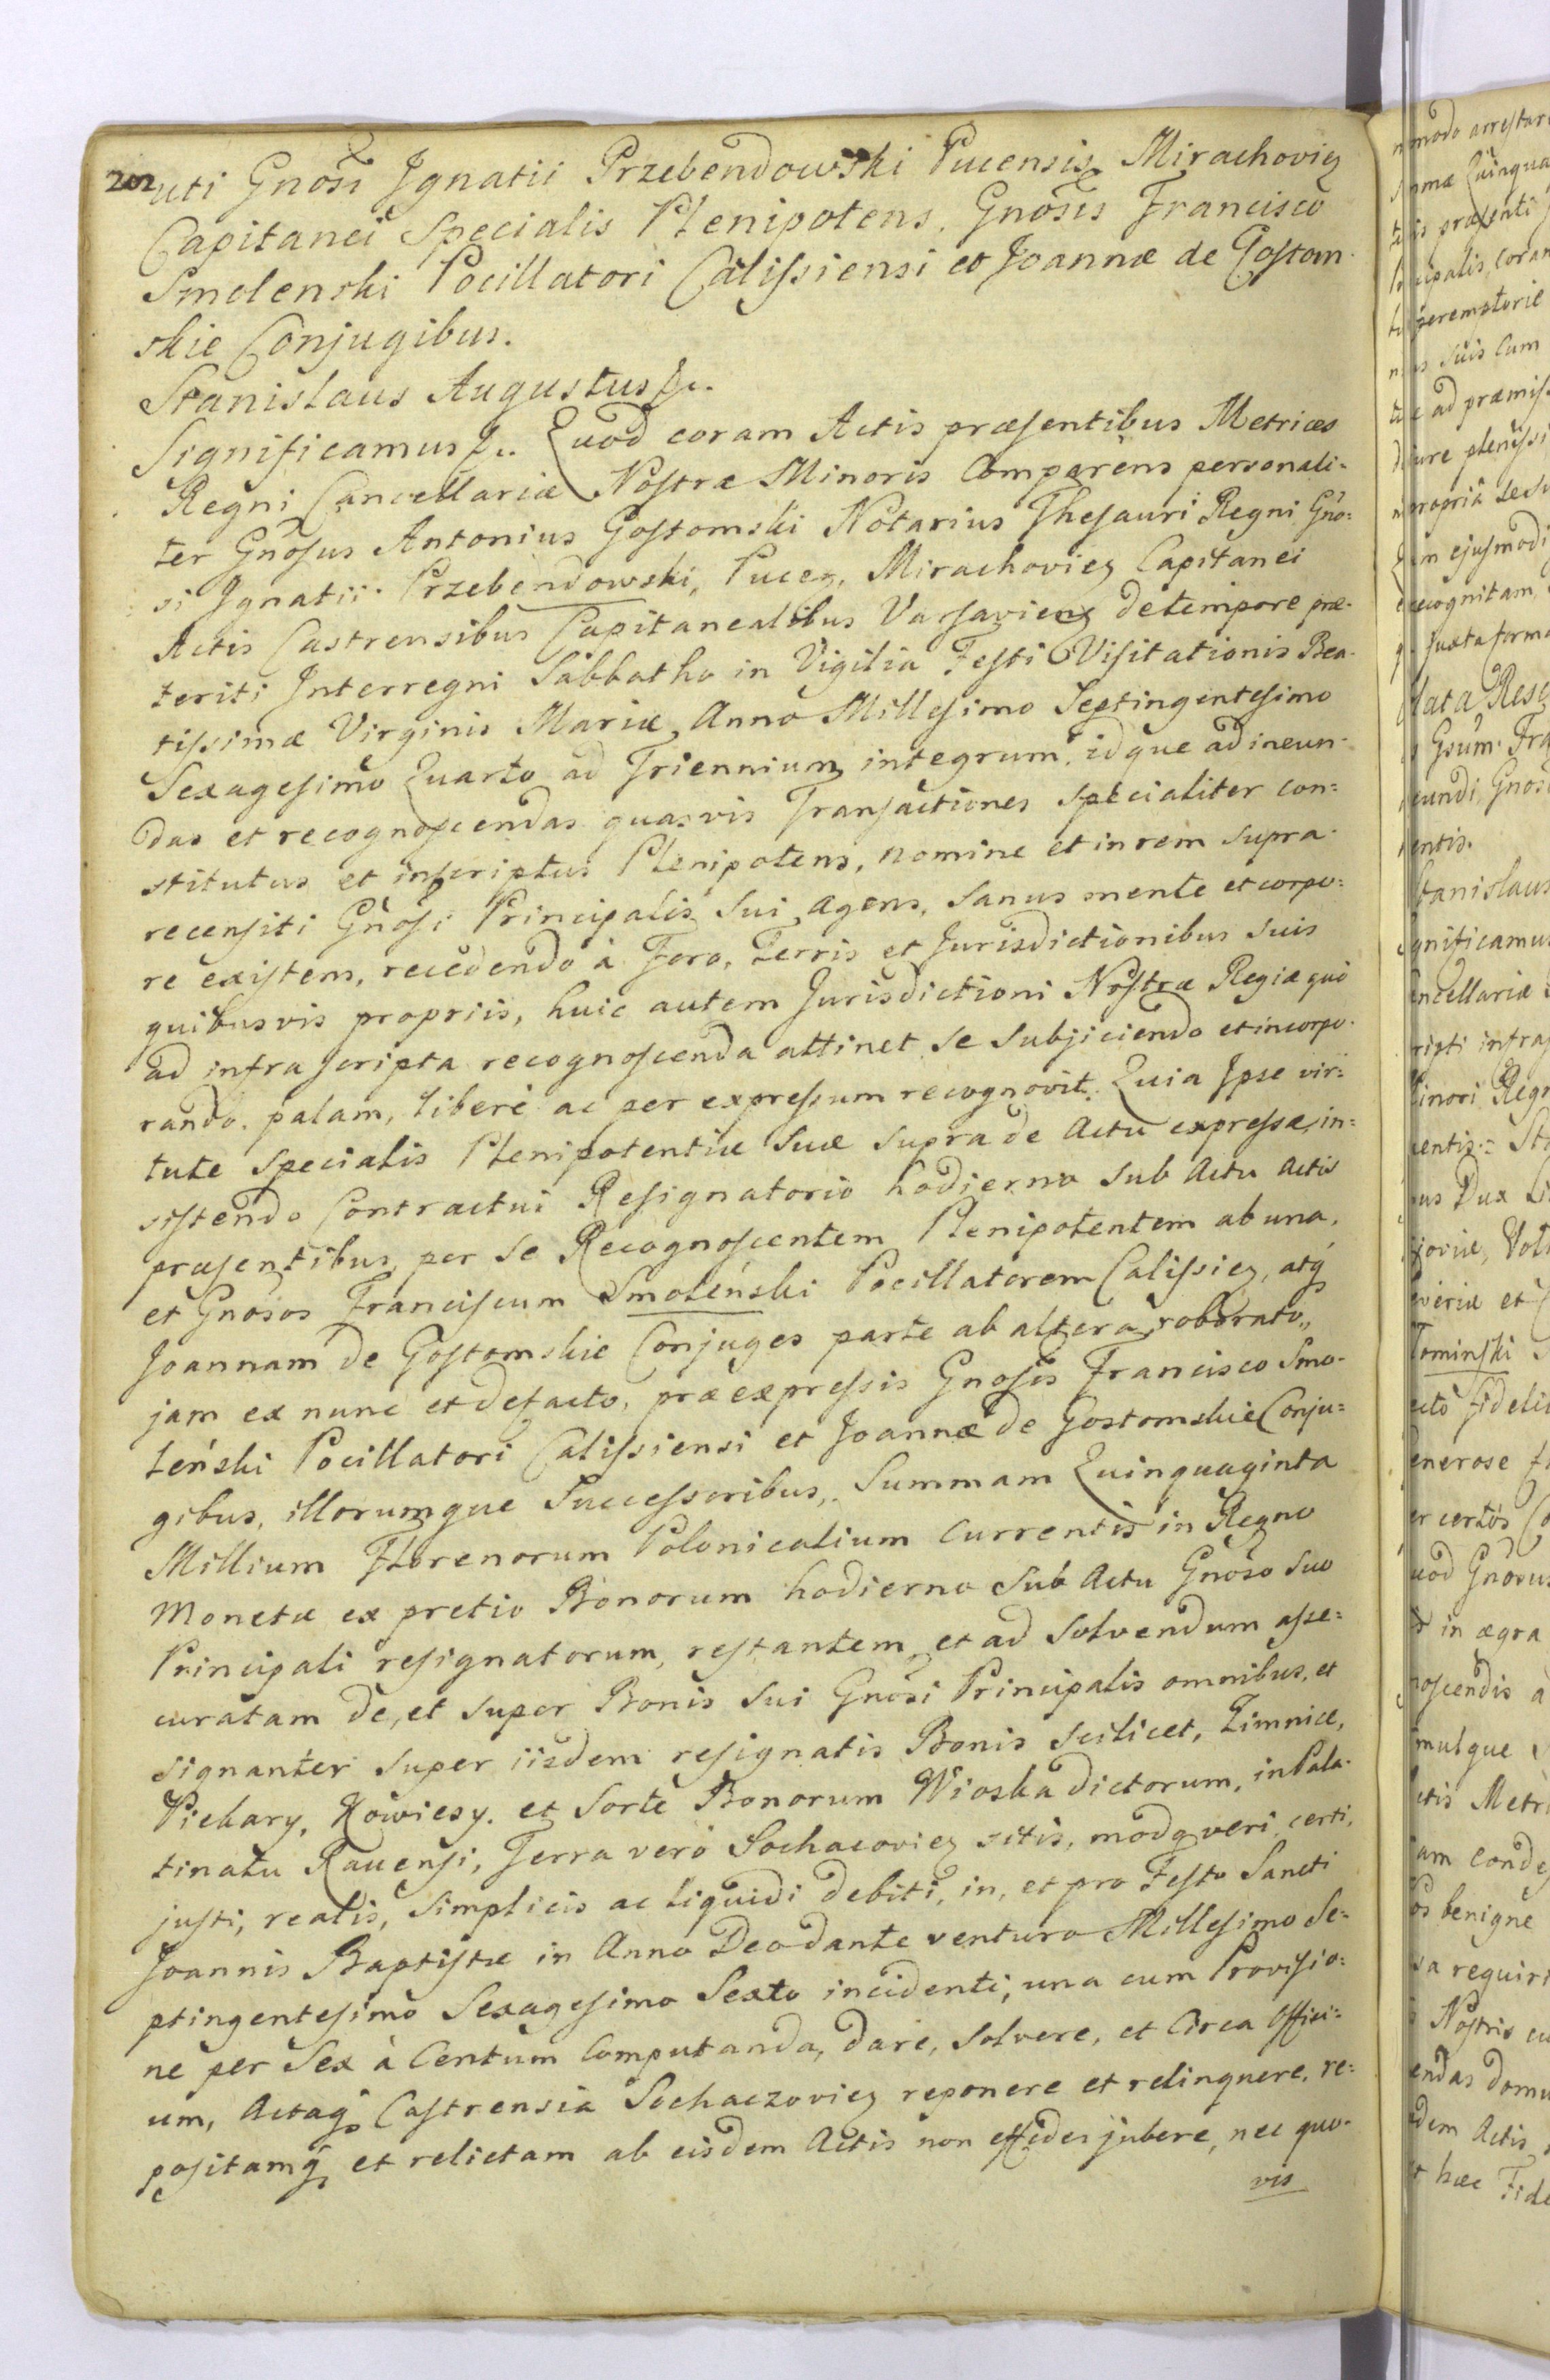 202
uti Gnosi Ignatii Przebendowski Pucensis Mirachoviez
Capitanei Specialis Plenipotens, Gnosis Francisco
Smolenski Pocillatori Calissiensi et Joannæ de Gostom-
skie Conjugibus.
Stanislaus Augustus &c.
Significamus &c. Quod coram Actis præsentibus Metrices
Regni Cancellariæ Nostræ Minoris Comparens personali-
ter Gnosus Antonius Gostomski Notarius Thesauri Regni Gno-
si Ignatii Przebendowski, Pucez, Mirachoviez Capitanei
Actis Castrensibus Capitanealibus Varsaviens de tempore præ-
teriti Interregni Sabbatho in Vigilia Festi Visitationis Bea-
tissimæ Virginis Mariæ, Anno Millesimo Septingentesimo
Sexagesimo Quarto ad Triennium integrum, idque ad ineun-
das et recognoscendas quasvis Transactiones specialiter con=
stitutus et inscriptus Plenipotens, nomine et in rem supra-
recensiti Gnosi Principalis sui agens, sanus mente et corpo=
re existens, recedendo à Foro, Terris et Jurisdictionibus suis
quibusvis propriis, huic autem Jurisdictioni Nostræ Regiæ quo
ad infra scripta recognoscenda attinet se subjiciendo et incorpo-
rando. palam, libere ac per expressum recognovit. Quia Ipse vir=
tute specialis Plenipotentiæ suæ supra de Actu expressæ, in=
sistendo Contractui Resignatorio hodierno sub Actu Actis
præsentibus per se Recognoscentem Plenipotentem ab una,
et Gnosos Franciscum Smoleński Pocillatorem Calissiez, atq
Joannam de Gostomskie Conjuges parte ab altera, roborato,,
jam ex nunc et defacto, præexpressis Gnosis Francisco Smo-
leński Pocillatori Calissiensi et Joannæ de Gostomskie Conju=
gibus, illorumque Successoribus, Summam Quinquaginta
Millium Florenorum Polonicalium Currentis in Regno
Monetæ ex pretio Bonorum hodierno sub Actu Gnoso suo
Principali resignatorum, restantem et ad solvendum asse=
curatam de, et super Bonis sui Gnosi Principalis omnibus, et
signanter super iisdem resignatis Bonis scilicet, Zimnice,
Piekary, Kowiesy. et Sorte Bonorum Wioska dictorum, in Pala-
tinatu Ravensi, Terra verò Sochacoviez sitis, modq veri, certi,
justi, realis, simplicis ac liquidi debiti, in, et pro Festo Sancti
Joannis Baptistæ in Anno Deo dante venturo Millesimo Se=
ptingentesimo Sexagesimo Sexto incidenti, una cum Provisio=
ne per Sex à Centum Computanda, dare, solvere, et Circa Offici=
um, Actaq Castrensia Sochaczoviez reponere et relinquere, re=
positamq et relictam ab eisdem Actis non jubere, nec quo-
vis